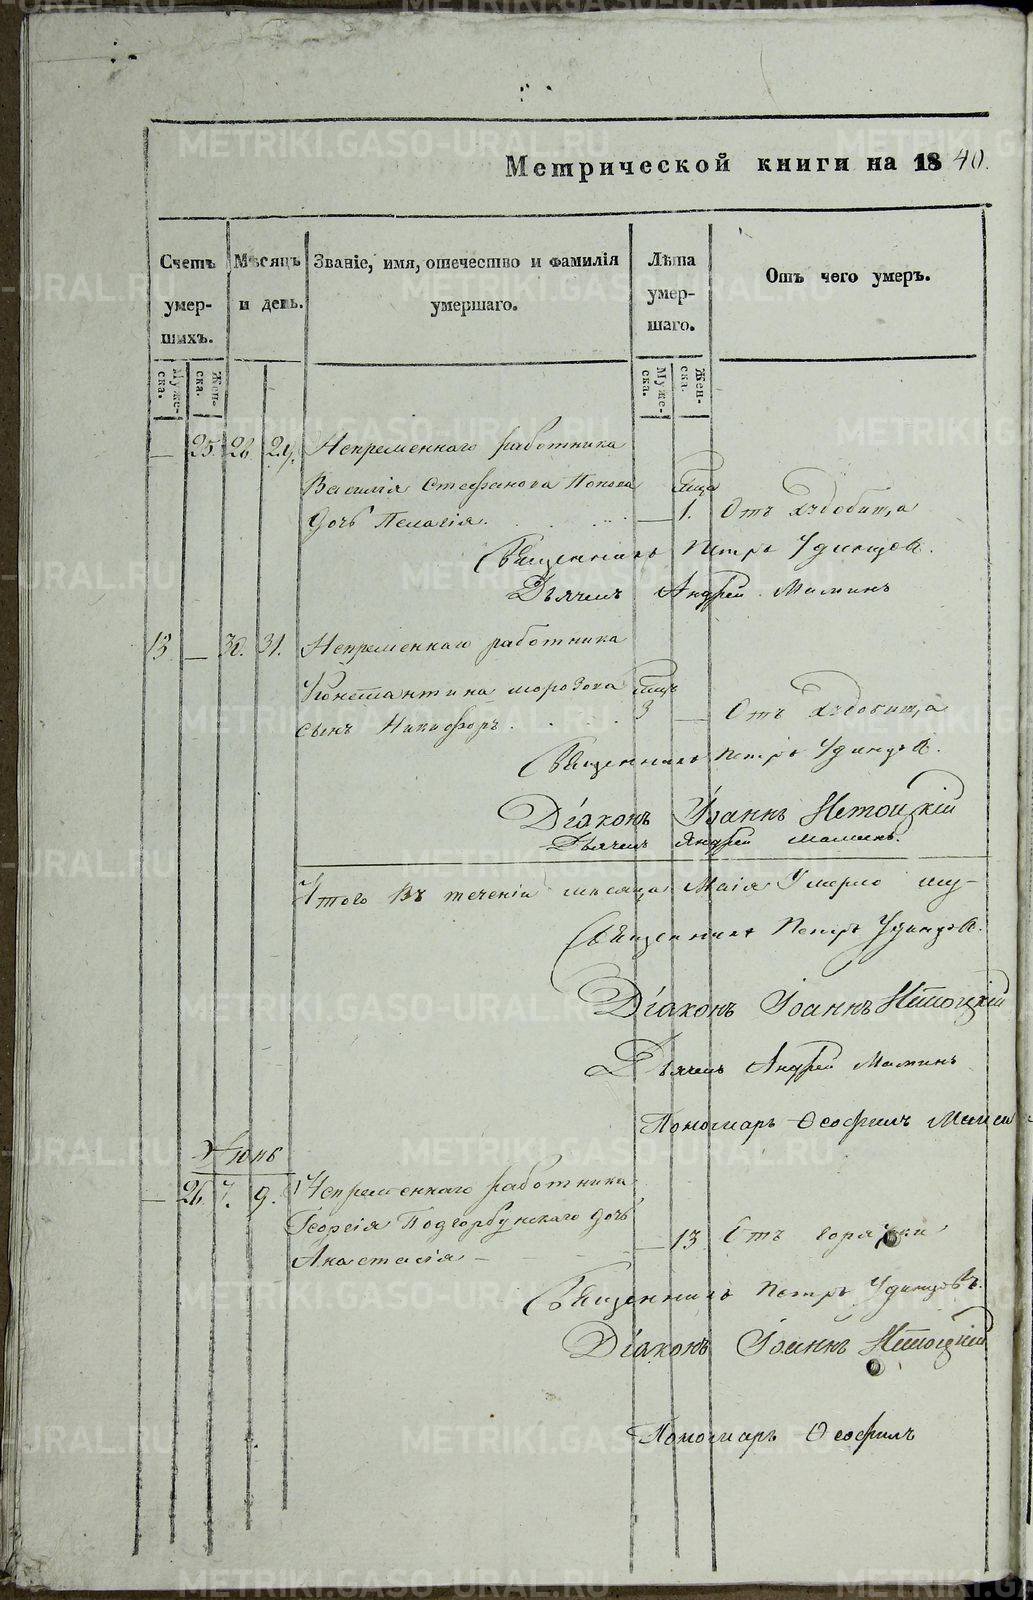 Метрической книги на 1840.
Счетъ умер-шихъ.
Мѣсяцъ и день.
Званіе, имя, отечество и фамилія умершаго.
Лѣта умер-шаго.
Отъ чего умеръ.
Муже-ска.
Жен-ска.
Муже-ска.
Жен-ска.
— 25. 26 29. Непременнаго работника
Василія Стефанова Попова
дочь Пелагія. — 1. Отъ
Священникъ Петръ Удинцовъ.
Дьячекъ Андрей Маминъ
13 — 30. 31. Непременнаго работника
Константина Морозова
сынъ Никифоръ. 3 — Отъ
Священникъ Петръ Удинцовъ.
Діаконъ Іоаннъ
Дьячекъ Андрей Маминъ.
Итого въ теченіи месяца Маія Умерло му-
Священникъ Петръ Удинцовъ.
Діаконъ Іоаннъ
Дьячекъ Андрей Маминъ
Пономарь Ѳеофилъ
Іюнь
— 26. 7. 9. Непременнаго работника
Георгія Подгорбунскаго дочь
Анастасія — — 13 Отъ горячки
Священникъ Петръ Удинцовъ.
Діаконъ Іоаннъ
Пономарь Ѳеофилъ
METRIKI.GASO-URAL.RU